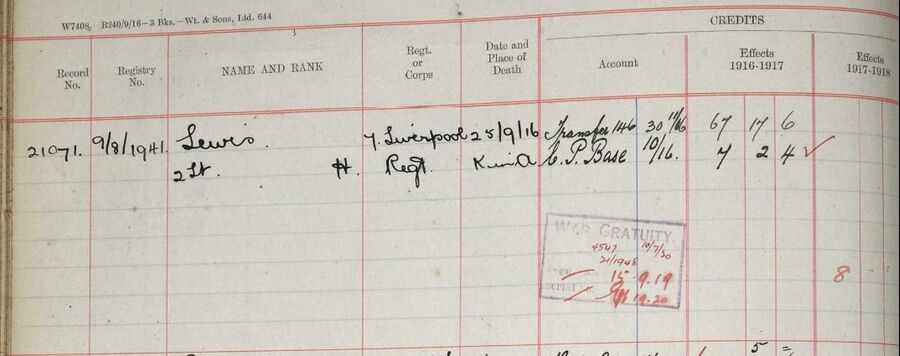 W7408. R240/9/16—3 Bks.—Wt. & Sons, Ltd. 644
CREDITS
Record No.
Registry No.
NAME AND RANK
Regt. or Corps
Date and Place of Death
Account
Effects 1916-1917
Effects 1917-1918
21071. 9/8/1941. Lewis. 7. Liverpool 25/9/16 Transfer 146 30 11/16 67 17 6
2 Lt. H. Regt. K in A C. P. Base 10/16. 7 2 4 ✓
WAR GRATUITY.
4547 10/7/20
21/1948
15 9.19
19.20
8
5